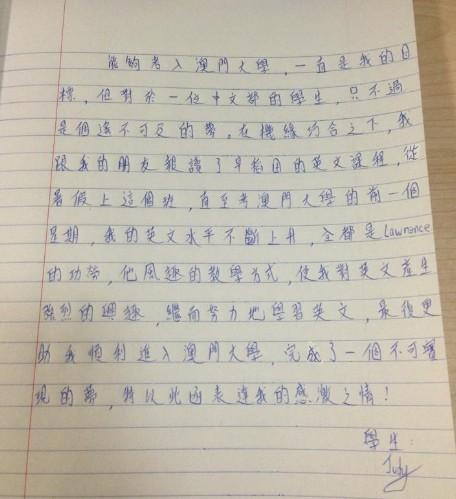 能夠考入澳門大學，一直是我的目
標，但對於一位中文部的學生，只不過
是個遙不可及的夢，在機緣巧合之下，我
跟我的朋友報讀了早稻田的英文課程，從
暑假上這個班，直至考澳門大學的前一個
星期，我的英文水平不斷上升，全都是Lawrence
的功勞，他風趣的教學方式，使我對英文產生
強烈的興趣，繼而努力地學習英文，最後更
助我順利進入澳門大學，完成了一個不可實
現的夢，特以此函表達我的感激之情！
學生：
Judy